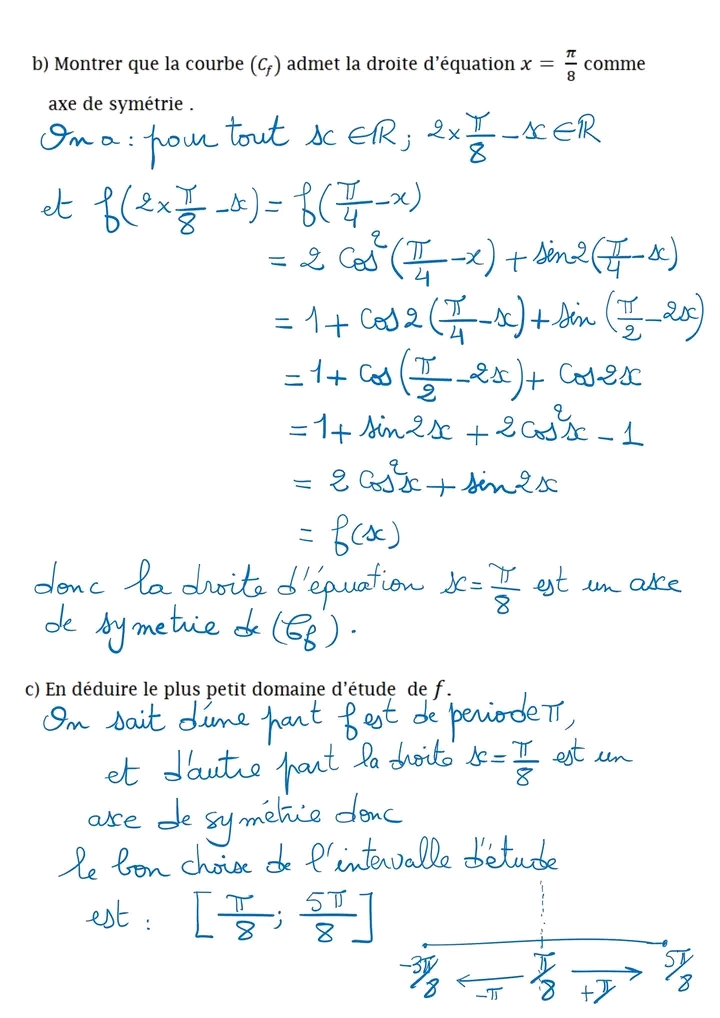 b) Montrer que la courbe (C_f) admet la droite d'équation x = π/8 comme
axe de symétrie .
On a : pour tout x ∈ ℝ ; 2×π/8 - x ∈ ℝ
et f(2×π/8 - x) = f(π/4 - x)
= 2 Cos²(π/4 - x) + sin2(π/4 - x)
= 1 + Cos2(π/4 - x) + sin(π/2 - 2x)
= 1 + Cos(π/2 - 2x) + Cos2x
= 1 + sin2x + 2Cos²x - 1
= 2 Cos²x + sin2x
= f(x)
donc la droite d'équation x = π/8 est un axe
de symetrie de (C_f) .
c) En déduire le plus petit domaine d'étude de f .
On sait d'une part f est de periode π,
et d'autre part la droite x = π/8 est un
axe de symétrie donc
le bon choise de l'intervalle d'étude
est : [π/8 ; 5π/8]
-3π/8 π/8 5π/8
-π +π/